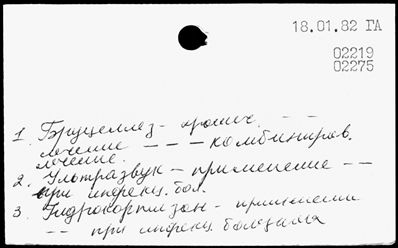 18.01.82 ГА
02219
02275
1. Бруцеллез - хронич. — —
лечение — — — комбиниров.
лечение.
2. Ультразвук - применение — —
при инфекц. бол.
3. Гидрокортизон - применение
— — при инфекц. болезнях